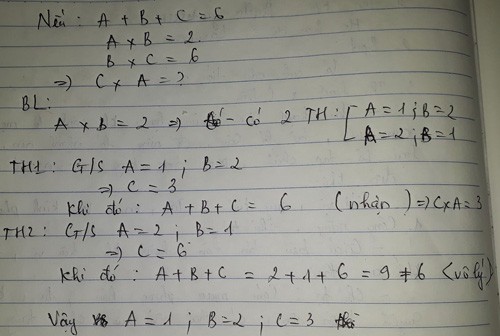 Nếu : A + B + C = 6
A x B = 2
B x C = 6
=> C x A = ?
BL:
A x B = 2 => có 2 TH: [ A = 1 ; B = 2
A = 2 ; B = 1
TH1 : G/S A = 1 ; B = 2
=> C = 3
Khi đó : A + B + C = 6 (nhận) => CxA = 3
TH2 : G/S A = 2 ; B = 1
=> C = 6
Khi đó : A + B + C = 2 + 1 + 6 = 9 ≠ 6 (vô lý)
Vậy A = 1 ; B = 2 ; C = 3